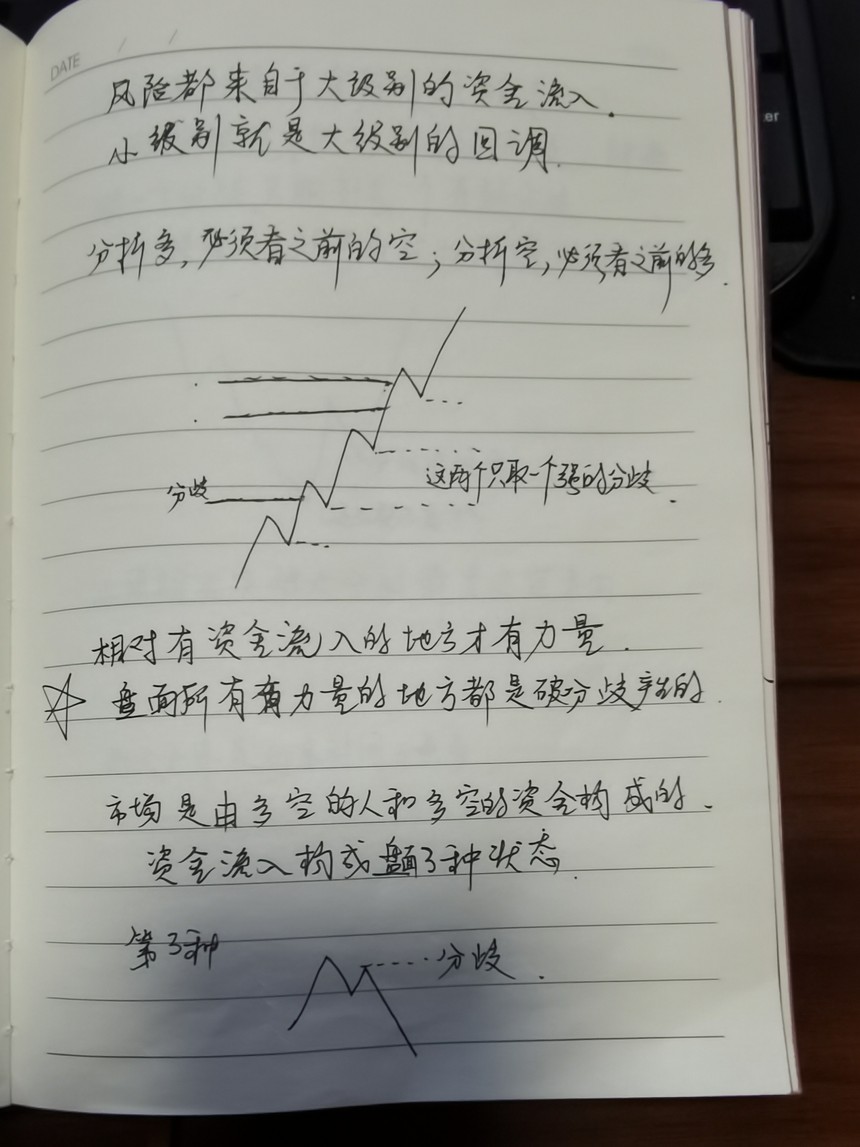 DATE / /
风险都来自于大级别的资金流入.
小级别就是大级别的回调.
分析多,必须看之前的空;分析空,必须看之前的多.
这两个只取一个强的分歧.
分歧
相对有资金流入的地方才有力量.
☆ 盘面所有有力量的地方都是破分歧产生的.
市场是由多空的人和多空的资金构成的.
资金流入构成盘面3种状态.
第3种
分歧.